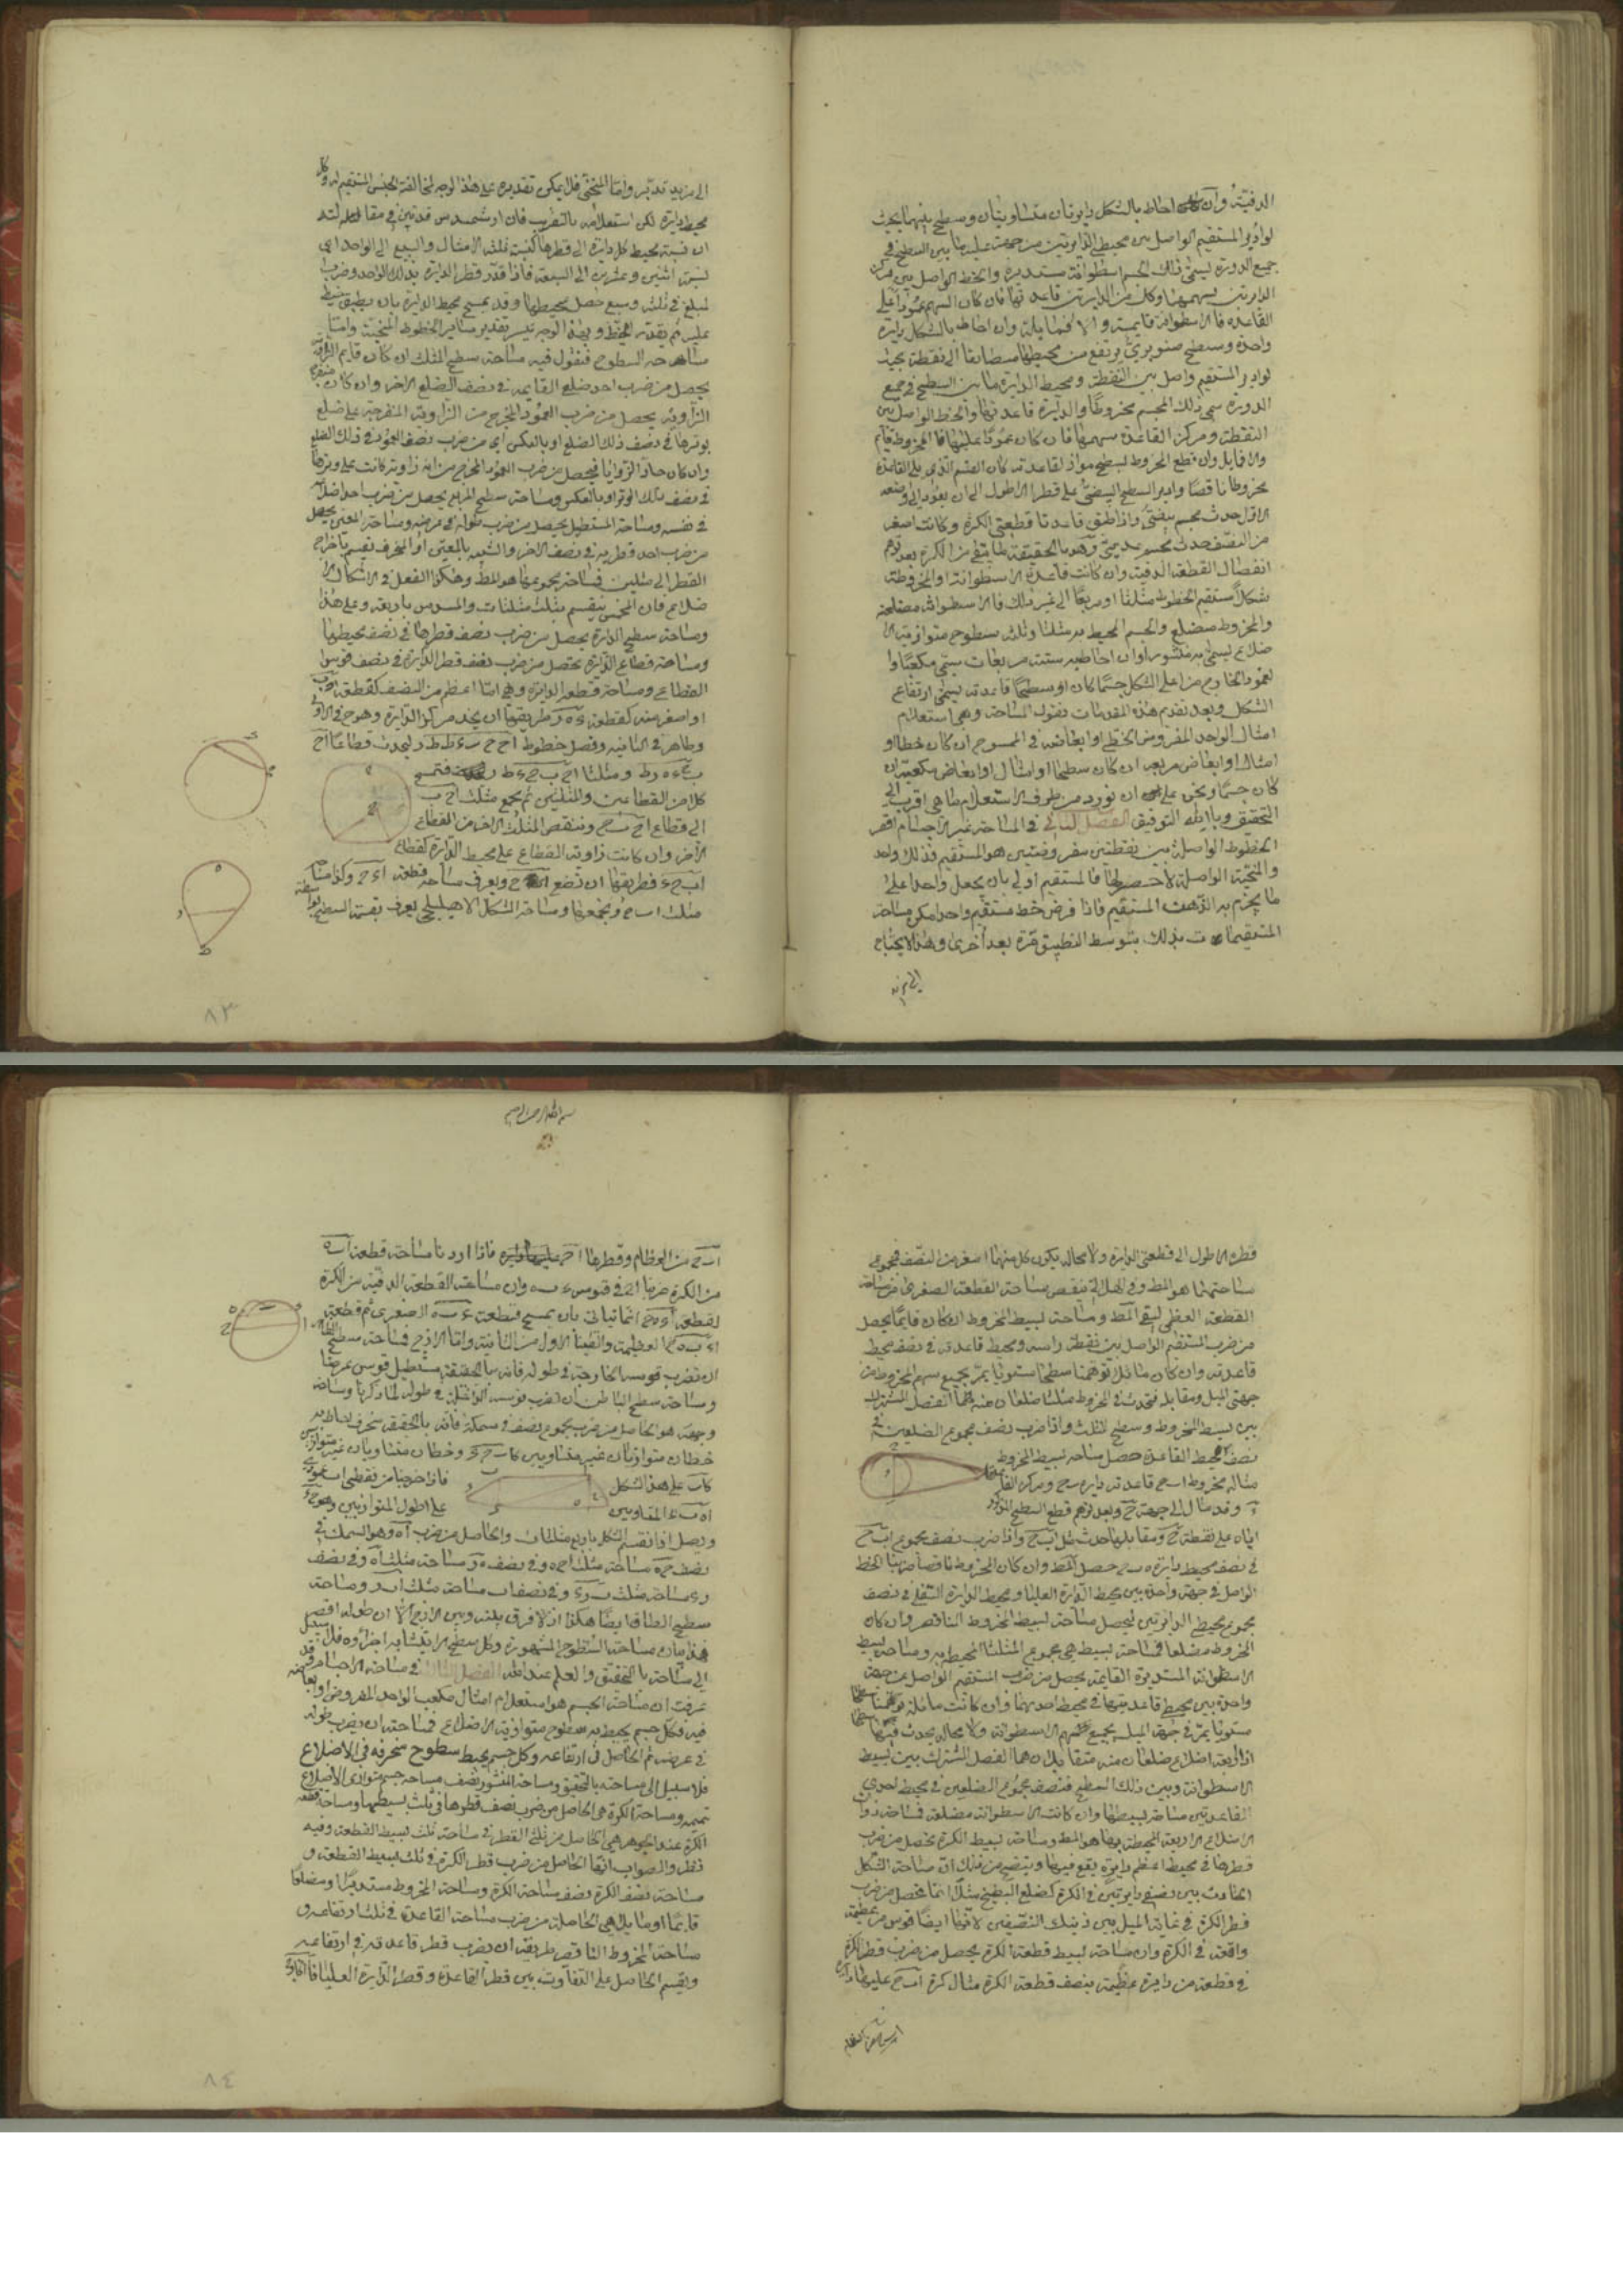 الدفية وان احاط بالشكل دايرتان متساويتان وسطح بينهما بحيث
لو ادير المستقيم الواصل بين محيطي الدايرتين من جهة عليهما بين السطح في
جميع الدورة ليسمى ذلك الجسم اسطوانة مستديرة والخط الواصل بين مركزي
الدايرتين سهمها وكل من الدايرتين قاعدتها فان كان السهم عمودا على
القاعدة فالاسطوانة قايمة والا فمايلة وان احاط بالشكل دايرة
واحدة وسطح صنوبري يرتفع من محيطها متضايقا الى نقطة بحيث
لو ادير المستقيم واصل بين النقطة ومحيط الدايرة ماس السطح في جميع
الدورة سمى ذلك المجسم مخروطا والدايرة قاعدتها والخط الواصل بين
النقطة ومركز القاعدة سهمها فان كان عمودا عليها فالمخروط قايم
والا فمايل وان قطع المخروط بسطح مواز لقاعدته كان القسم الذي يلي القاعدة
مخروطا ناقصا وادير السطح البيضى على قطر الاطول الى ان يعود الى وضعه
الاول حدث مجسم بيضى واذا طبق قاعدتا قطعتي الكرة وكانت اصغر
من النصف حدث مجسم عدسى وهو بالحقيقة ما يبقى من الكرة بعد توهم
انفصال القطعة الدفية وان كانت قاعدة الاسطوانة او المخروطة
شكلا مستقيم الخطوط مثلثا او مربعا الى غير ذلك فالاسطوانة مضلعة
والمخروط مضلع والجسم المحيط به مثلثان وثلثة سطوح متوازية الا
ضلاع ليسمى منشورا وان احاط به ستة مربعات سمى مكعبا و
العمود الخارج من اعلى الشكل جسما كان او سطحا قاعدته ليسمى ارتفاع
الشكل وبعد تقديم هذه المقدمات نقول المساحة وهى استعلام
امثال الواحد المفروض الخطي او ابعاضه في الممسوح ان كان خطا او
امثال او ابعاض مربعه ان كان سطحا او امثال او ابعاض مكعبه ان
كان جسما ونحن على ان نورد من طرف الاستعلام ما هي اقرب الى
التحقيق وبالله التوفيق الفصل الثاني في المساحة غير الاجسام اقصر
الخطوط الواصلة بين نقطتين مفروضتين هو المستقيم فذلك واحد
والمنحنية الواصلة لا حصر لها فالمستقيم اولى بان يجعل واحدا على
ما يجزم به الذهن المستقيم فاذا فرض خط مستقيم واحدا امكن مساحة
المستقيمات بذلك بتوسط التطبيق مرة بعد اخرى وهذا لا يحتاج
الى مزيد
الى مزيد تدبر واما المنحنى فلا يمكن تقديره على هذا الوجه لمخالفة الجنس المستقيم له وكل
محيط دايرة لكن استعلامه بالتقريب فان ارشميدس قد بين في مقالة له
ان نسبة محيط كل دايرة الى قطرها كنسبة ثلثة الامثال والسبع الى الواحد اعنى
نسبة اثنين وعشرين الى السبعة فاذا قدر قطر الدايرة بذلك الواحد وضرب
المبلغ في ثلثة وسبع حصل محيطها وقد يمسح محيط الدايرة بان يطبق خيط
عليه ثم يقدر الخيط وبهذا الوجه تيسر تقدير ساير الخطوط المنحنية واما
مساحة السطوح فنقول فيه مساحة سطح المثلث ان كان قايم الزاوية
يحصل من ضرب احد ضلعي القايمة في نصف الضلع الاخر وان كان منفرج
الزاوية يحصل من ضرب العمود المخرج من الزاوية المنفرجة على ضلع
يوترها في نصف ذلك الضلع او بالعكس اي من ضرب نصف العمود في ذلك الضلع
وان كان حاد الزوايا فيحصل من ضرب العمود المخرج من اية زاوية كانت على وترها
في نصف ذلك الوتر او بالعكس ومساحة سطح المربع يحصل من ضرب احد اضلاعه
في نفسه ومساحة المستطيل يحصل من ضرب طوله في عرضه ومساحة المعين يحصل
من ضرب احد قطريه في نصف الاخر والشبيه بالمعين او المنحرف تقسم باخراج
القطر الى مثلثين فمساحة مجموعهما هو المط وهكذا الفعل في الاشكال الا
ضلاع فان المخمس ينقسم بثلث مثلثات والمسدس باربعة وعلى هذا
ومساحة سطح الدايرة يحصل من ضرب نصف قطرها في نصف محيطها
ومساحة قطاع الدايرة تحصل من ضرب نصف قطر الدايرة في نصف قوس
القطاع ومساحة قطعة الدايرة وهي اما اعظم من النصف كقطعة
او اصغر منه كقطعة فطريقها ان يجد مركز الدايرة وهو ح في الاولى
وظاهر في الثانية ونصل خطوط ليحدث قطاعا
ومثلثا فنمسح
كلا من القطاعين والمثلثين ثم نجمع مثلث
الى قطاع وننقص المثلث الاخر من القطاع
الاخر وان كانت زاوية القطاع على محيط الدايرة كقطاع
فطريقها ان نضع ويعرف مساحة قطعة وكذا مساحة
مثلث ونجمعها ومساحة الشكل الاهليلجي يعرف بقسمة السطح بواسطة
٨٣
قطره الاطول الى قطعتي الدايرة ولا محالة يكون كل منهما اصغر من النصف فمجموع
مساحتهما هو المط وفي الهلالي ينقص مساحة القطعة الصغرى من مساحة
القطعة العظمى ليبقى المط ومساحة بسيط المخروط ان كان قايما يحصل
من ضرب المستقيم الواصل بين نقطة راسه ومحيط قاعدته في نصف محيط
قاعدته وان كان مائلا توهمنا سطحا مستويا يمر بجميع سهم المخروط من
جهتي الميل ومقابله فتحدث في المخروط مثلث ضلعان منه هما الفصل المشترك
بين بسيط المخروط وسطح المثلث واذا ضرب نصف مجموع الضلعين في
نصف محيط القاعدة حصل مساحة بسيط المخروط
مثاله مخروط قاعدته دايرة ومركز القاعدة
وقد مال الى جهة ح وبعد توهم قطع السطح المذكور
اياه على نقطة ومقابلها حدث مثلث واذا ضرب نصف مجموع
في نصف محيط دايرة حصل المط وان كان المخروط ناقصا ضربنا الخط
الواصل في جهة واحدة بين محيط الدايرة العليا ومحيط الدايرة السفلى في نصف
مجموع محيط الدايرتين ليحصل مساحة بسيط المخروط الناقص وان كان
المخروط مضلعا فمساحة بسيطه هي مجموع المثلثات المحيطة به ومساحة بسيط
الاسطوانة المستديرة القايمة يحصل من ضرب المستقيم الواصل من جهة
واحدة بين محيط قاعدتيها في محيط احديهما وان كانت مائلة توهمنا سطحا
مستويا يمر في جهة الميل بجميع سهم الاسطوانة ولا محالة يحدث فيها سطح
ذو اربعة اضلاع ضلعان منه متقابلان هما الفصل المشترك بين بسيط
الاسطوانة وبين ذلك السطح فنصف مجموع الضلعين في محيط احدى
القاعدتين مساحة بسيطها وان كانت الاسطوانة مضلعة فمساحة ذوات
الاضلاع الاربعة المحيطة بها هو المط ومساحة بسيط الكرة تحصل من ضرب
قطرها في محيط اعظم دايرة يقع فيها ويتضح من ذلك ان مساحة الشكل
الحادث بين نصفي دايرتين في الكرة كضلع البطيخ مثلا انما يحصل من ضرب
قطر الكرة في غاية الميل بين ذينك النصفين لانها ايضا قوس من عظيمة
واقعة في الكرة وان مساحة بسيط قطعة الكرة يحصل من ضرب قطر الكرة
في قطعة من دايرة عظيمة بنصف قطعة الكرة مثال كرة عليها دايرة
بسم الله الرحمن الرحيم
من العظام وقطرها فاذا اردنا مساحة قطعة
من الكرة ضربنا في قوس وان مساحة القطعة الدفية من الكرة
كقطعة انما تتاتى بان يمسح قطعة الصغرى ثم قطعة
العظيمة والقينا الاول من الثانية واما الازج فمساحة سطحه
ان تضرب قوسه الخارجة في طوله فانه بالحقيقة مستطيل قوسى عرضا
ومساحة سطح الباطن ان تضرب قوسه الداخلة في طوله لما ذكرنا ومساحة
وجهه هو الحاصل من ضرب مجموع نصف في سمكه فانه بالحقيقة منحرف احاط به
خطان متوازيان غير متساويين وخطان متساويان غير متوازيين
على هذا الشكل
فاذا اخرجنا من نقطتي عمودي
على اطول المتوازيين وهو
ونصل انقسم الشكل باربع مثلثات والحاصل من ضرب وهو السمك في
نصف مساحة مثلث وفي نصف مساحة مثلث وفي نصف
مساحة مثلث وفي نصف مساحة مثلث ومساحة
سطح الطاق ايضا هكذا اذ لا فرق بينه وبين الازج الا ان طوله اقصر
فهذا بيان مساحة السطوح المشهورة وكل سطح لا يتشابه اجزاؤه فلا سبيل
الى مساحته بالتحقيق والعلم عند الله الفصل الثالث في مساحة الاجسام قد
عرفت ان مساحة الجسم هو استعلام امثال مكعب الواحد المفروض او ابعاضه
فيه فكل جسم يحيط به سطوح متوازية الاضلاع فمساحته ان يضرب طوله
في عرضه ثم الحاصل في ارتفاعه وكل جسم يحيط سطوح منحرفة في الاضلاع
فلا سبيل الى مساحته بالتحقيق ومساحة المنشور نصف مساحة جسم متوازي الاضلاع
تميمه ومساحة الكرة هي الحاصل من ضرب نصف قطرها في ثلث بسيطها ومساحة قطعة
الكرة عند الجوهرى الحاصل من ثلث القطر في مساحة ثلث بسيط القطعة وفيه
نظر والصواب انها الحاصل من ضرب قطر الكرة في ثلث بسيط القطعة و
مساحة نصف الكرة نصف مساحة الكرة ومساحة المخروط مستديرا او مضلعا
قايما او مايلا هي الحاصلة من ضرب مساحة القاعدة في ثلث ارتفاعه و
مساحة المخروط الناقص طريقه ان يضرب قطر قاعدته في ارتفاعه
ويقسم الحاصل على التفاوت بين قطر القاعدة وقطر الدايرة العليا فالخارج
٨٤